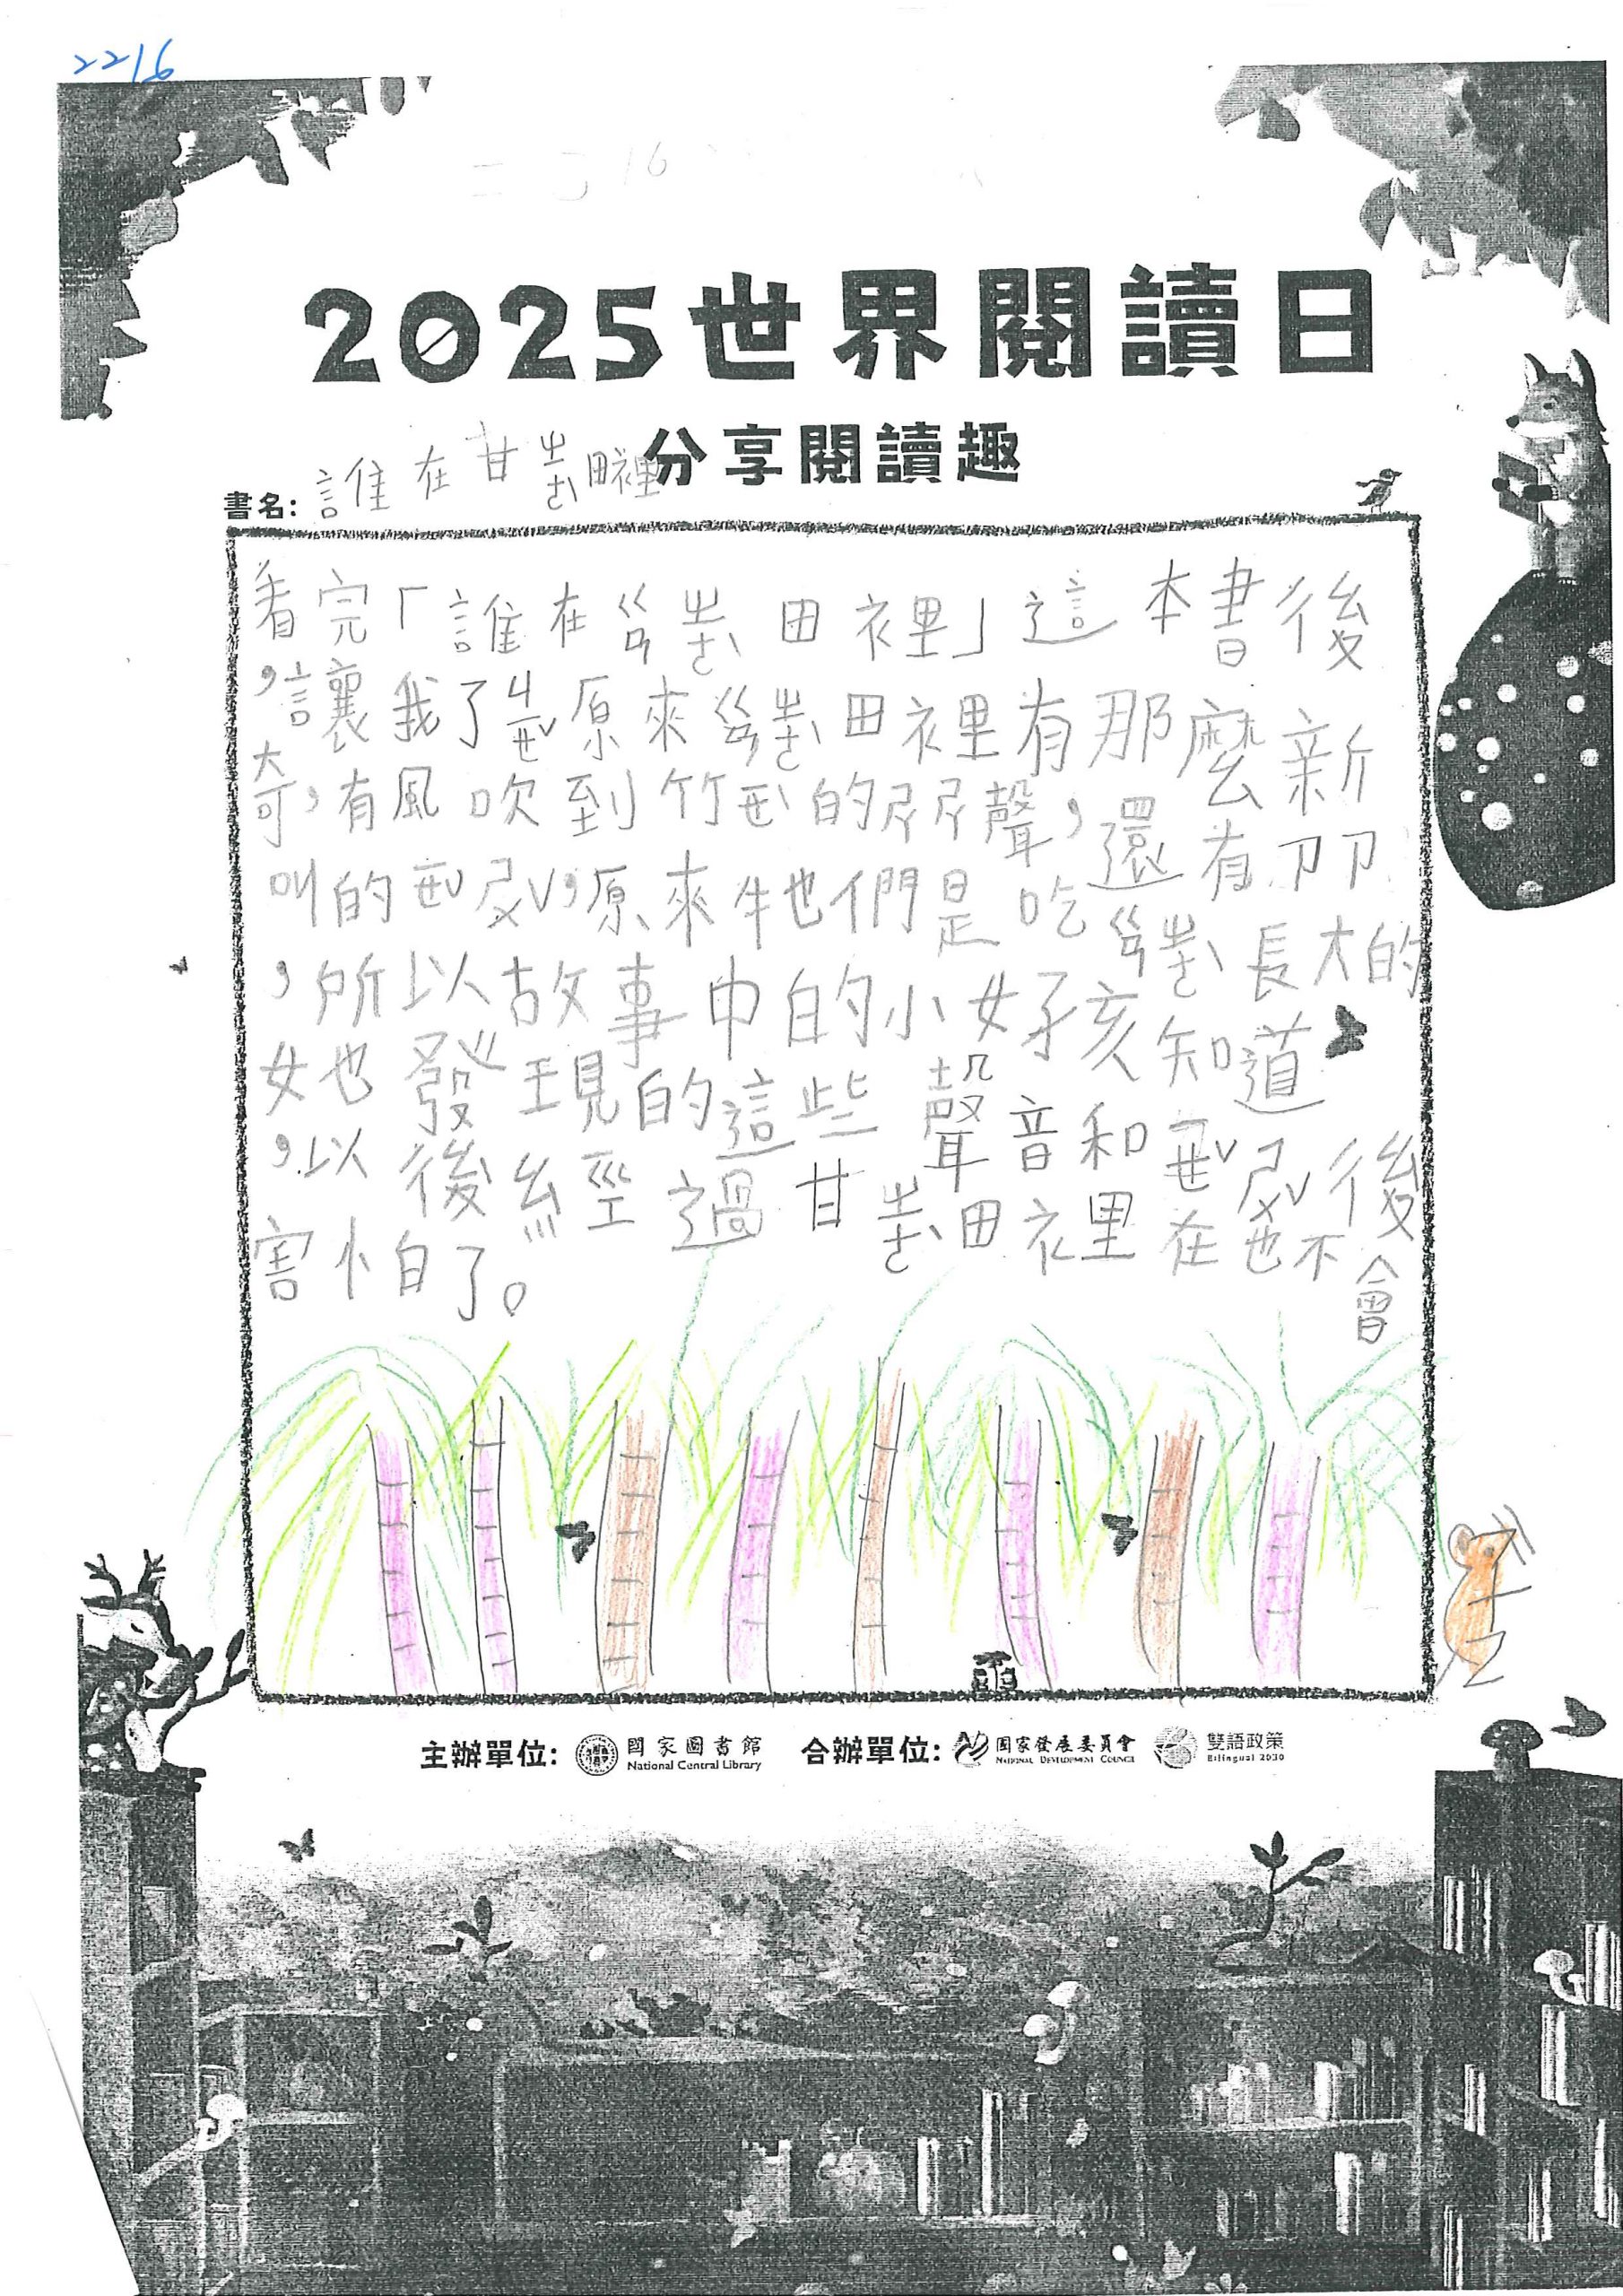 2216
2025世界閱讀日
分享閱讀趣
書名：誰在甘ㄓㄜˋ田裡
看完「誰在ㄍㄢㄓㄜˋ田裡」這本書後
，讓我了ㄐㄧㄝˇ原來ㄍㄢㄓㄜˋ田裡有那麼新
奇，有風吹到竹ㄧㄝˋ的ㄕㄚㄕㄚ聲，還有ㄗㄗ
叫的ㄧㄝˇㄕㄨˇ，原來牠們是吃ㄍㄢㄓㄜˋ長大的
，所以故事中的小女孩知道
她發現的這些聲音和ㄧㄝˇㄕㄨˇ後
，以後經過甘ㄓㄜˋ田裡在也不會
害怕了。
主辦單位：國家圖書館 National Central Library 合辦單位：國家發展委員會 National Development Council 雙語政策 Bilingual 2030